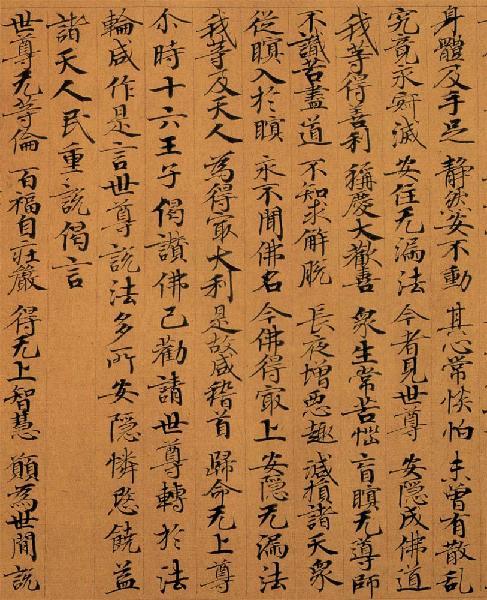 身體及手足 静然安不動 其心常惔怕 未曾有散乱
究竟永寂滅 安住无漏法 今者見世尊 安隱成佛道
我等得善利 稱慶大歡喜 衆生常苦惱 盲瞑无尊師
不識苦盡道 不知求解脫 長夜增惡趣 減損諸天衆
從瞑入於瞑 永不聞佛名 今佛得冣上 安隱无漏法
我等及天人 為得冣大利 是故咸稽首 歸命无上尊
尒時十六王子偈讃佛已勸請世尊轉於法
輪咸作是言世尊說法多所安隱憐愍饒益
諸天人民重說偈言
世尊无等倫 百福自莊嚴 得无上智慧 願為世間說